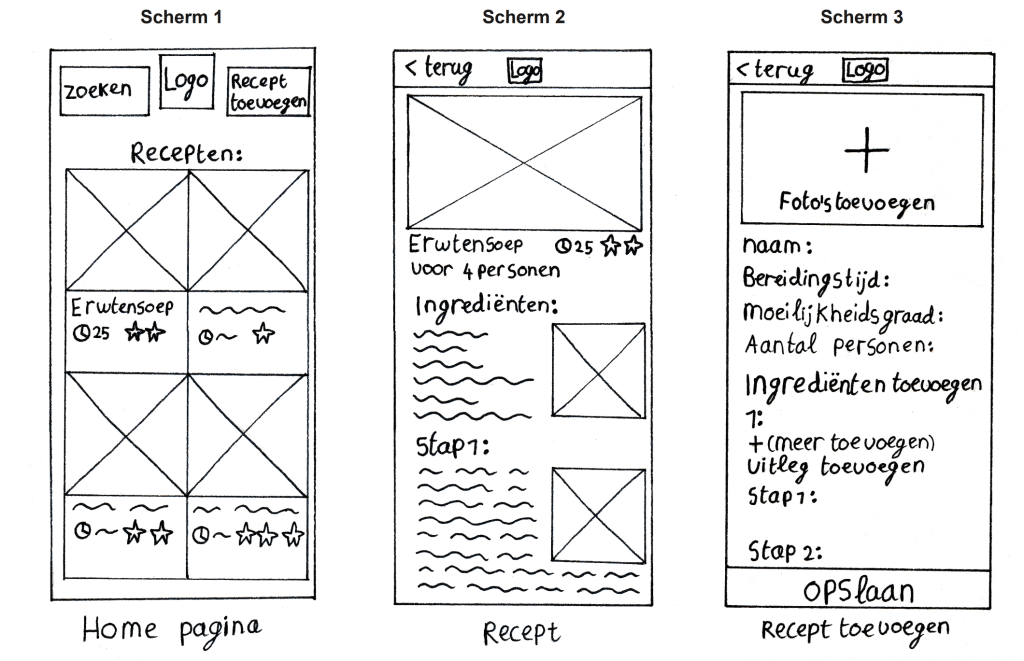 Scherm 1
zoeken
Logo
Recept
toevoegen
Recepten:
Erwtensoep
25
Home pagina
Scherm 2
< terug
Logo
Erwtensoep 25
voor 4 personen
Ingrediënten:
Stap 1:
Recept
Scherm 3
< terug
Logo
+
Foto's toevoegen
naam:
Bereidingstijd:
Moeilijkheidsgraad:
Aantal personen:
Ingrediënten toevoegen
1:
+ (meer toevoegen)
uitleg toevoegen
Stap 1:
Stap 2:
OPSlaan
Recept toevoegen